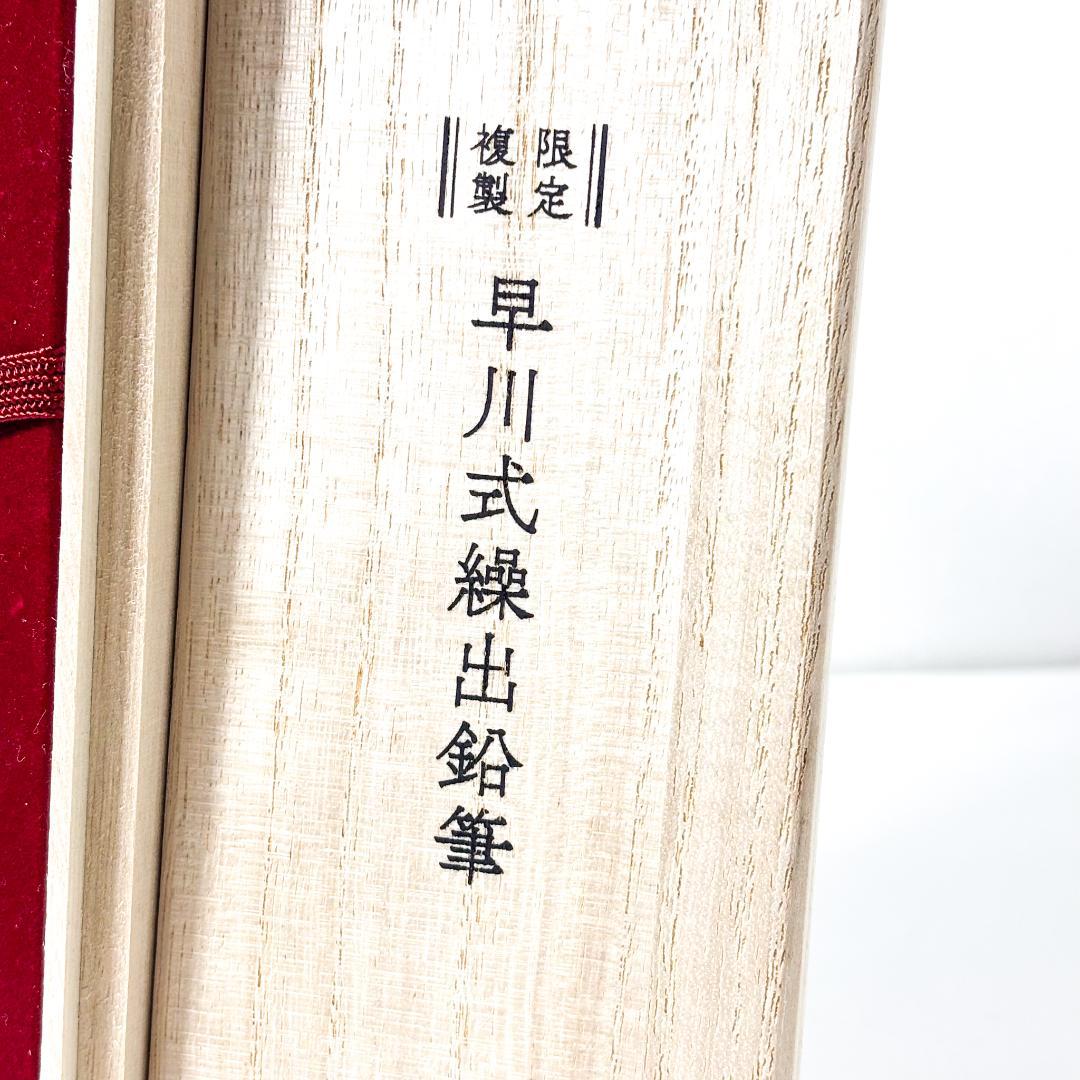 限定
複製
早川式繰出鉛筆